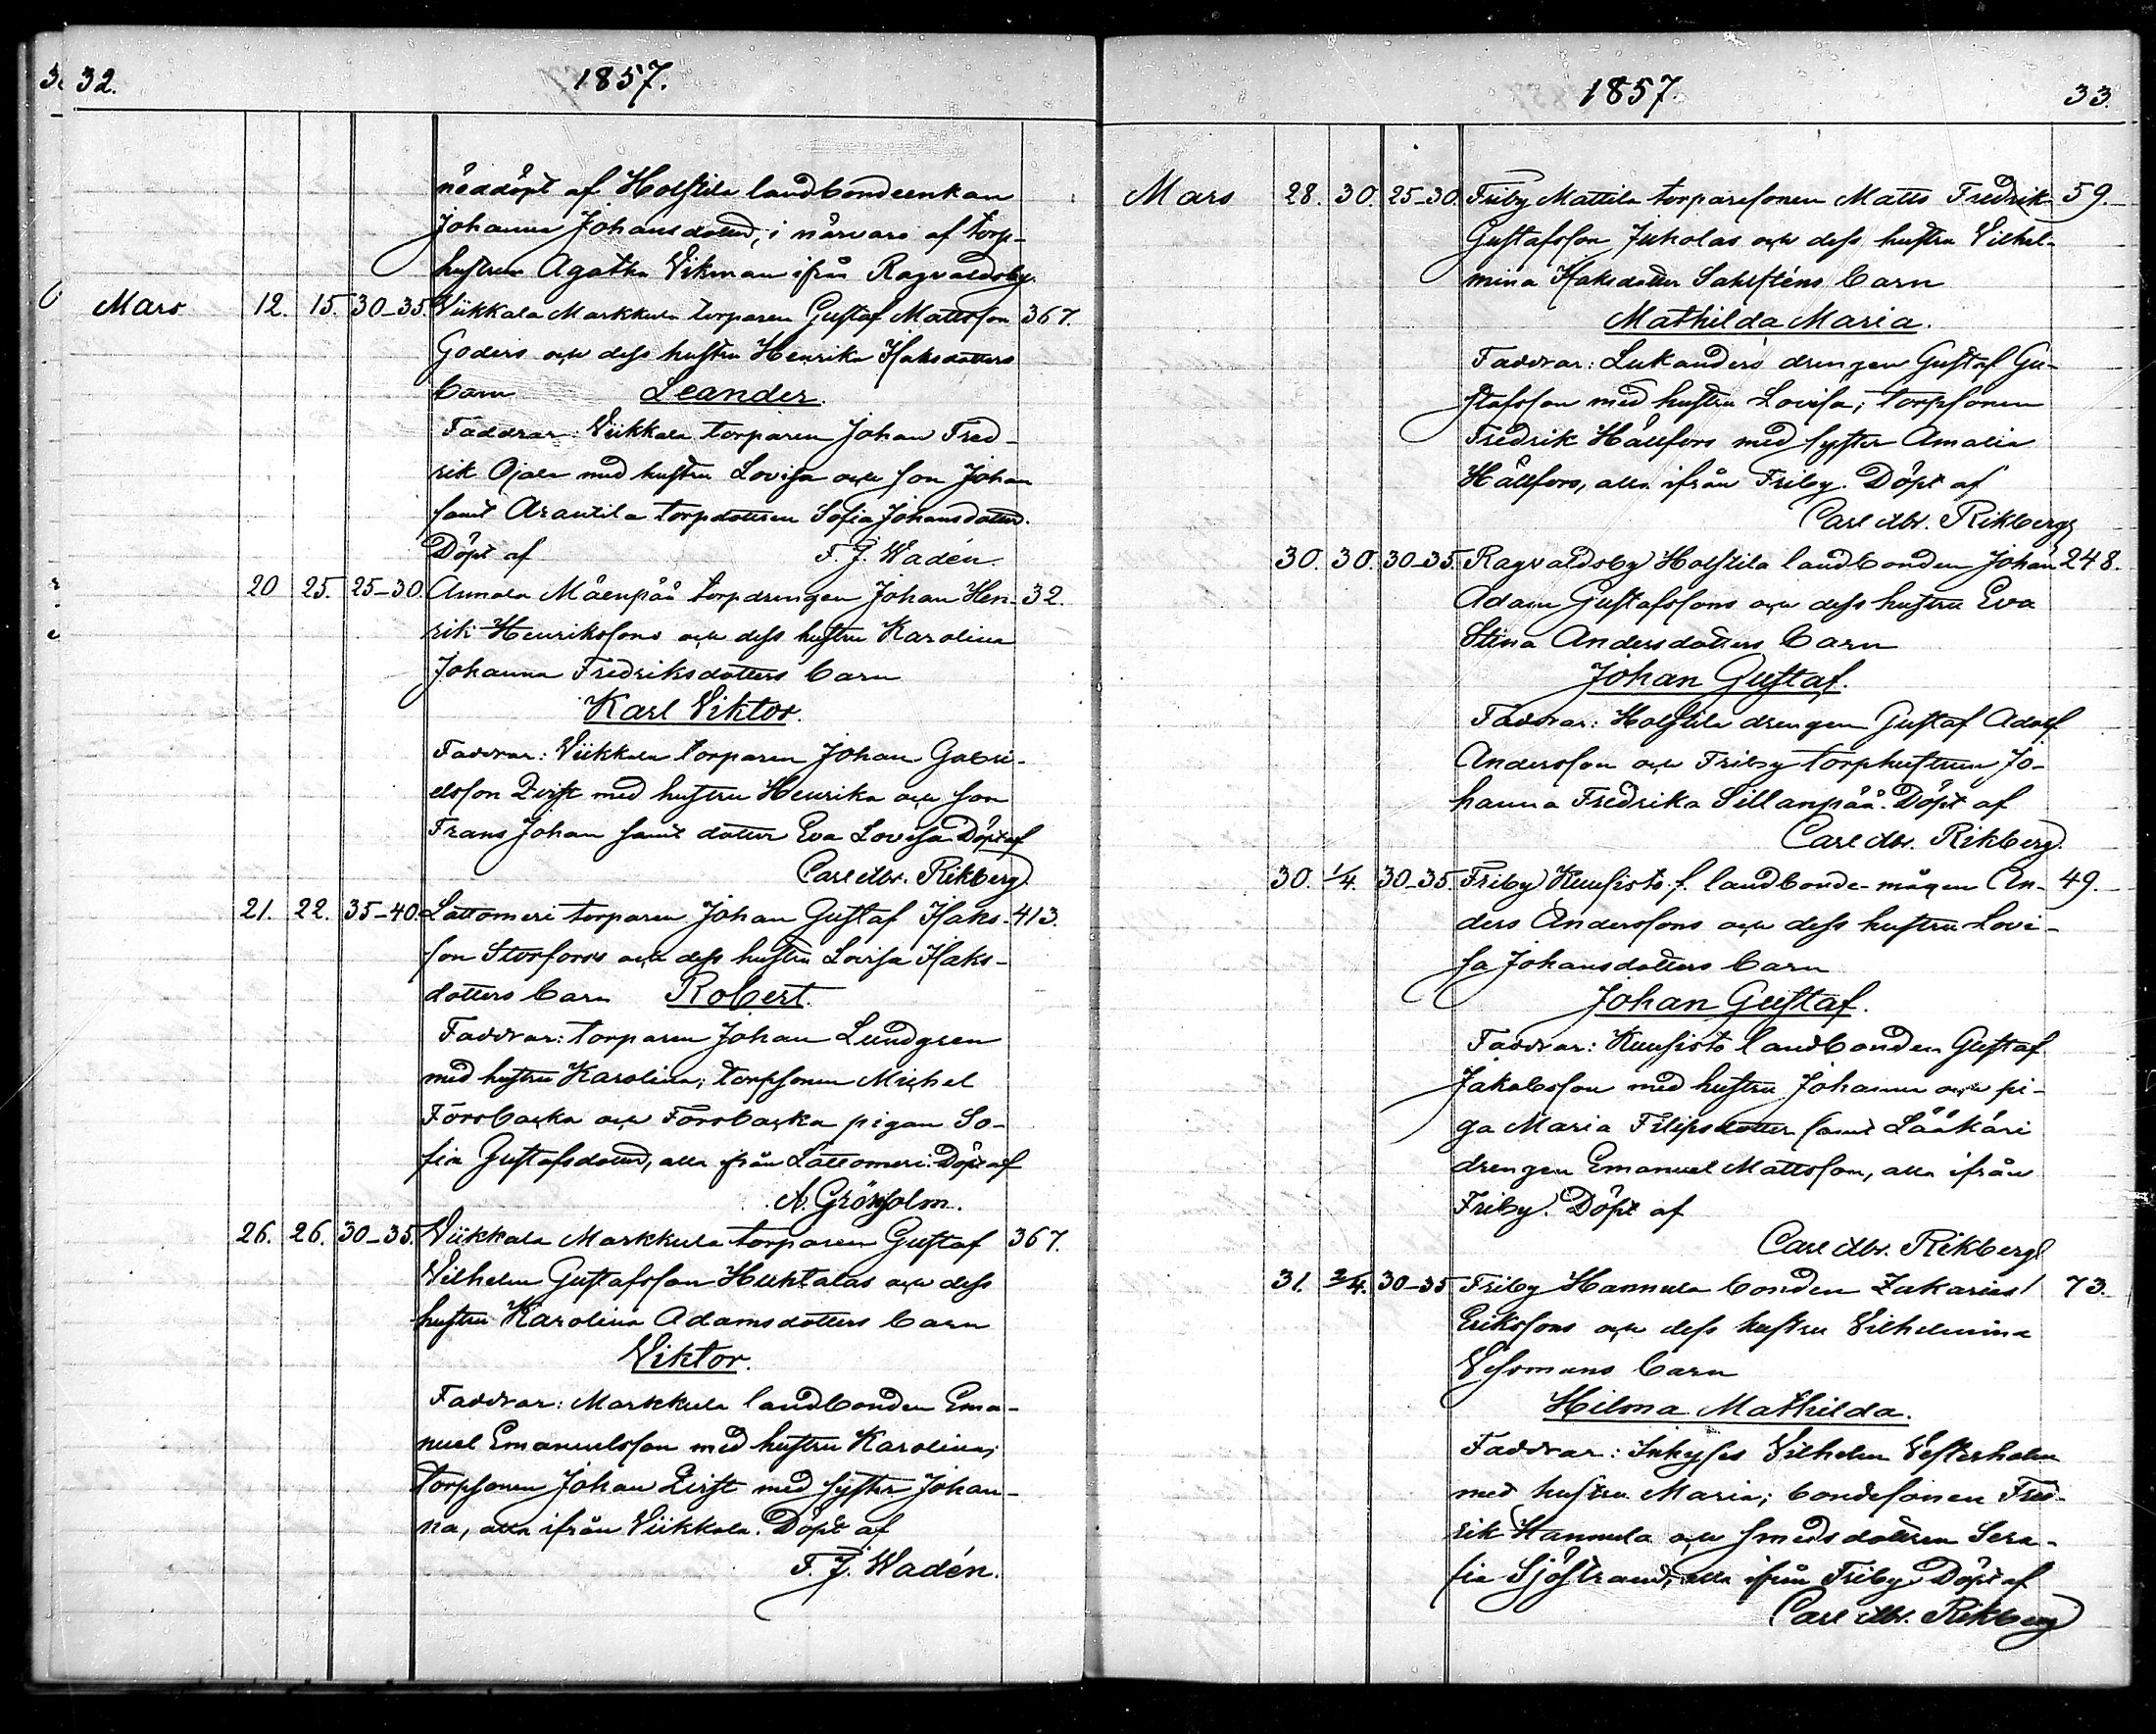 32.
1857.
nöddöpt af Holstila landbondeenkan
Johanna Johansdotter, i närvaro af torp-
hustrun Agatha Vikman ifrån Ragvaldsby.
Mars 12. 15. 30-35. Viikkala Markkula torparen Gustaf Mattsson 367.
Goders och dess hustru Henrika Isaksdotters
barn Leander.
Faddrar: Viikkala torparen Johan Fred-
rik Ojala med hustru Lovisa och son Johan
samt Arantila torpdottren Sofia Johansdotter.
Döpt af F. J. Wadén.
20 25. 25-30. Annala Mäenpää torpdrengen Johan Hen- 32.
rik Henrikssons och dess hustru Karolina
Johanna Fredriksdotters barn
Karl Viktor.
Faddrar: Viikkala torparen Johan Gabri-
elsson Qvist med hustru Henrika och son
Frans Johan samt dotter Eva Lovisa. Döpt af
Carl Rikberg.
21. 22. 35-40. Lattomeri torparen Johan Gustaf Isaks- 413.
son Storfors och dess hustru Lovisa Isaks-
dotters barn Robert.
Faddrar: torparen Johan Lundgren
med hustru Karolina; torpsonen Michel
Forsbacka och Forsbacka pigan So-
fia Gustafsdotter, alla ifrån Lattomeri. Döpt af
A. Grönholm.
26. 26. 30-35. Viikkala Markkula torparen Gustaf 367.
Vilhelm Gustafsson Huhtalas och dess
hustru Karolina Adamsdotters barn
Viktor.
Faddrar: Markkula landbonden Ema-
nuel Emanuelsson med hustru Karolina;
torpsonen Johan Qvist med syster Johan-
na, alla ifrån Viikkala. Döpt af
F. J. Wadén.
1857.
33.
Mars 28. 30. 25-30. Friby Mattila torparesonen Matts Fredrik 59.
Gustafsson Jukolas och dess hustru Vilhel-
mina Isaksdotter Sahlsténs barn
Mathilda Maria.
Faddrar: Lukanders drengen Gustaf Gu-
stafsson med hustru Lovisa; torpsonen
Fredrik Hällfors med syster Amalia
Hällfors, alla ifrån Friby. Döpt af
Carl Rikberg
30. 30. 30-35. Ragvaldsby Holstila landbonden Johan 248.
Adam Gustafssons och dess hustru Eva
Stina Andersdotters barn
Johan Gustaf.
Faddrar: Holstila drengen Gustaf Adolf
Andersson och Friby torphustrun Jo-
hanna Fredrika Sillanpää. Döpt af
Carl Rikberg.
30. 1/4. 30-35 Friby Kuusisto f. landbonde-mågen An- 49.
ders Anderssons och dess hustru Lovi-
sa Johansdotters barn
Johan Gustaf.
Faddrar: Kuusisto landbonden Gustaf
Jakobsson med hustru Johanna och pi-
ga Maria Filipsdotter samt Lääkäri
drengen Emanuel Mattsson, alla ifrån
Friby. Döpt af
Carl Rikberg
31. 2/4. 30-35 Friby Hannula bonden Zakarias 73.
Erikssons och dess hustru Vilhelmina
Vessmans barn
Hilma Mathilda.
Faddrar: Vilhelm Vesterholm
med hustru Maria; bondesonen Fred-
rik Hannula och smedsdottren Sera-
fia Sjöstrand, alla ifrån Friby. Döpt af
Carl Rikberg